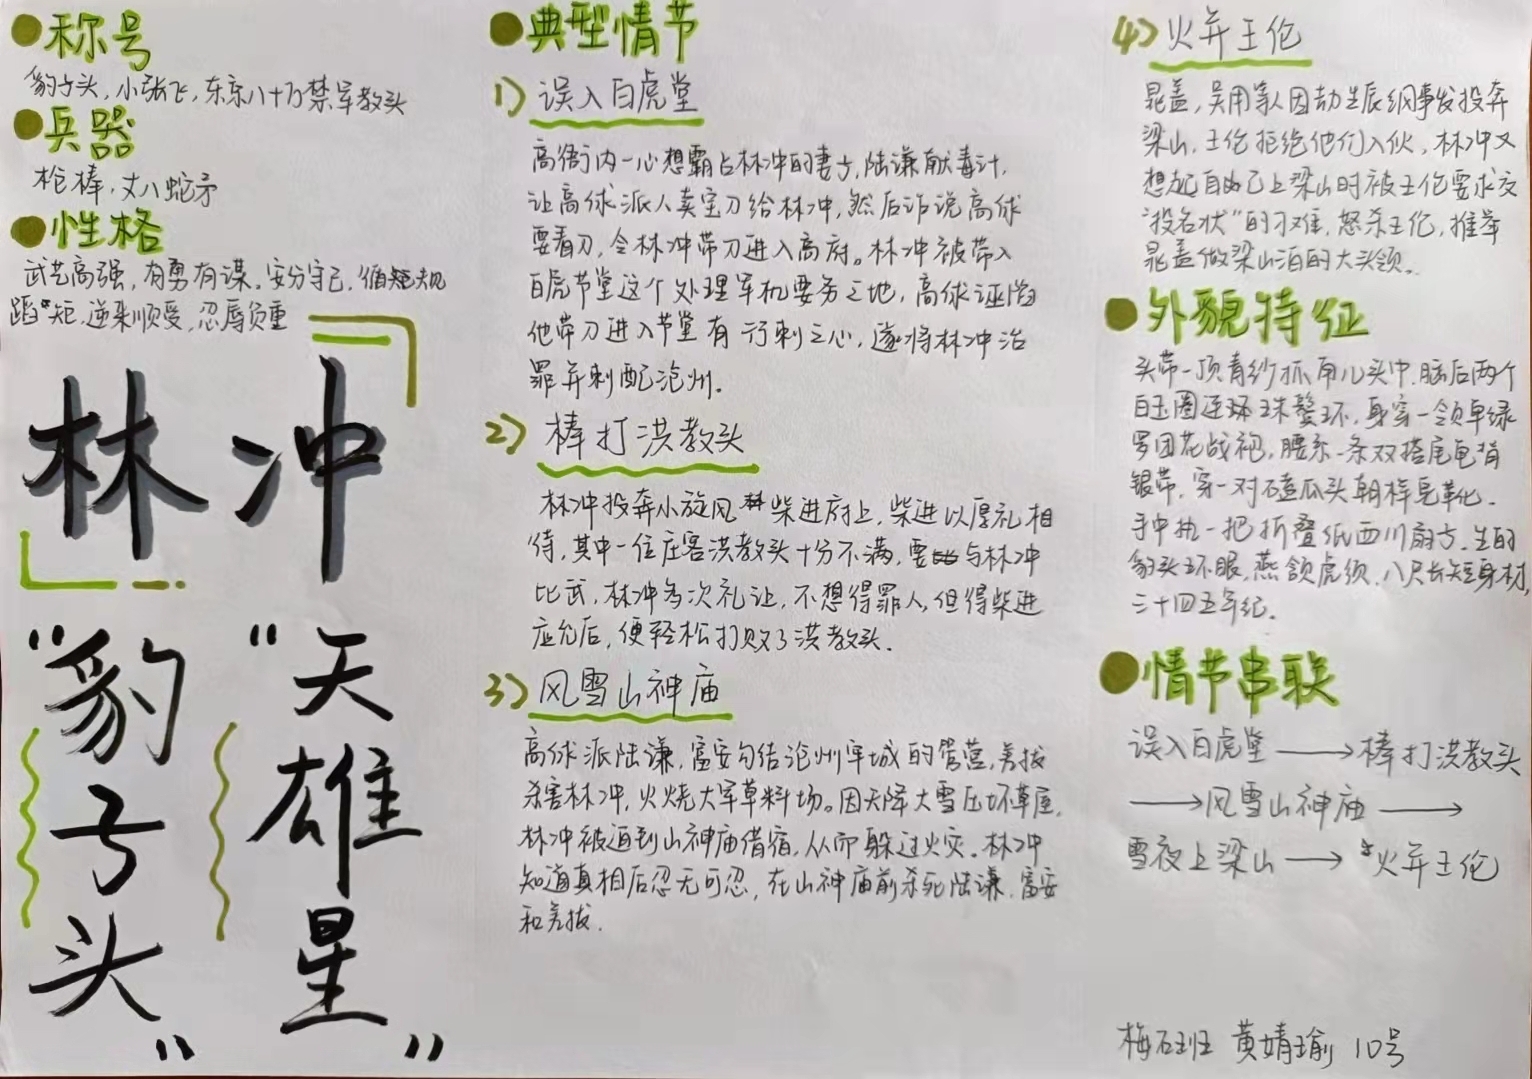 称号
豹子头，小张飞，东京八十万禁军教头
兵器
枪棒，丈八蛇矛
性格
武艺高强，有勇有谋。安分守己，循规
蹈矩，逆来顺受，忍辱负重
林冲
"豹子头"
"天雄星"
典型情节
1）误入白虎堂
高衙内一心想霸占林冲的妻子，陆谦献毒计，
让高俅派人卖宝刀给林冲，然后诈说高俅
要看刀，令林冲带刀进入高府。林冲被带入
白虎节堂这个处理军机要务之地，高俅诬陷
他带刀进入节堂有行刺之心，遂将林冲治
罪并刺配沧州．
2）棒打洪教头
林冲投奔小旋风柴进府上，柴进以厚礼相
待，其中一位庄客洪教头十分不满，要与林冲
比武，林冲多次礼让，不想得罪人，但得柴进
应允后，便轻松打败了洪教头．
3）风雪山神庙
高俅派陆谦，富安勾结沧州牢城的管营，差拔
杀害林冲，火烧大军草料场。因天降大雪压坏草屋，
林冲被迫到山神庙借宿，从而躲过火灾．林冲
知道真相后忍无可忍，在山神庙前杀死陆谦，富安
和差拔．
4）火并王伦
晁盖，吴用等人因劫生辰纲事发投奔
梁山，王伦拒绝他们入伙，林冲又
想起自己上梁山时被王伦要求交
"投名状"的刁难，怒杀王伦，推举
晁盖做梁山泊的大头领．
外貌特征
头带一顶青纱抓角儿头巾．脑后两个
白玉圈连环珠鬓环．身穿一领单绿
罗团花战袍，腰系一条双搭尾龟背
银带．穿一对磕瓜头朝样皂靴．
手中执一把折叠纸西川扇子．生的
豹头环眼，燕颔虎须，八尺长短身材，
三十四五年纪．
情节串联
误入白虎堂 → 棒打洪教头
→ 风雪山神庙 →
雪夜上梁山 → 火并王伦
黄婧瑜 10号